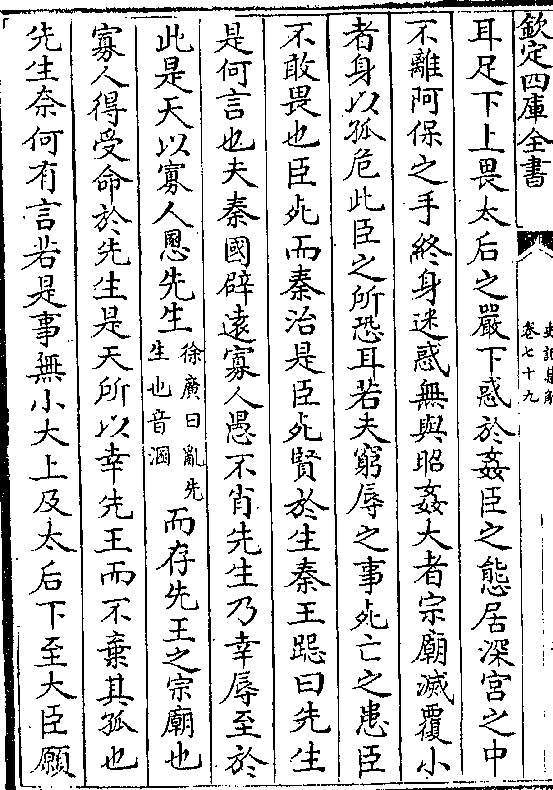 欽定四庫全書
史記集解
卷七十九
耳足下上畏太后之嚴下惑於姦臣之態居深宮之中
不離阿保之手終身迷惑無與昭姦大者宗廟滅覆小
者身以孤危此臣之所恐耳若夫窮辱之事死亡之患臣
不敢畏也臣死而秦治是臣死賢於生秦王跽曰先生
是何言也夫秦國辟遠寡人愚不肖先生乃幸辱至於
此是天以寡人慁先生
徐廣曰亂先
生也音溷
而存先王之宗廟也
寡人得受命於先生是天所以幸先王而不棄其孤也
先生奈何有言若是事無小大上及太后下至大臣願